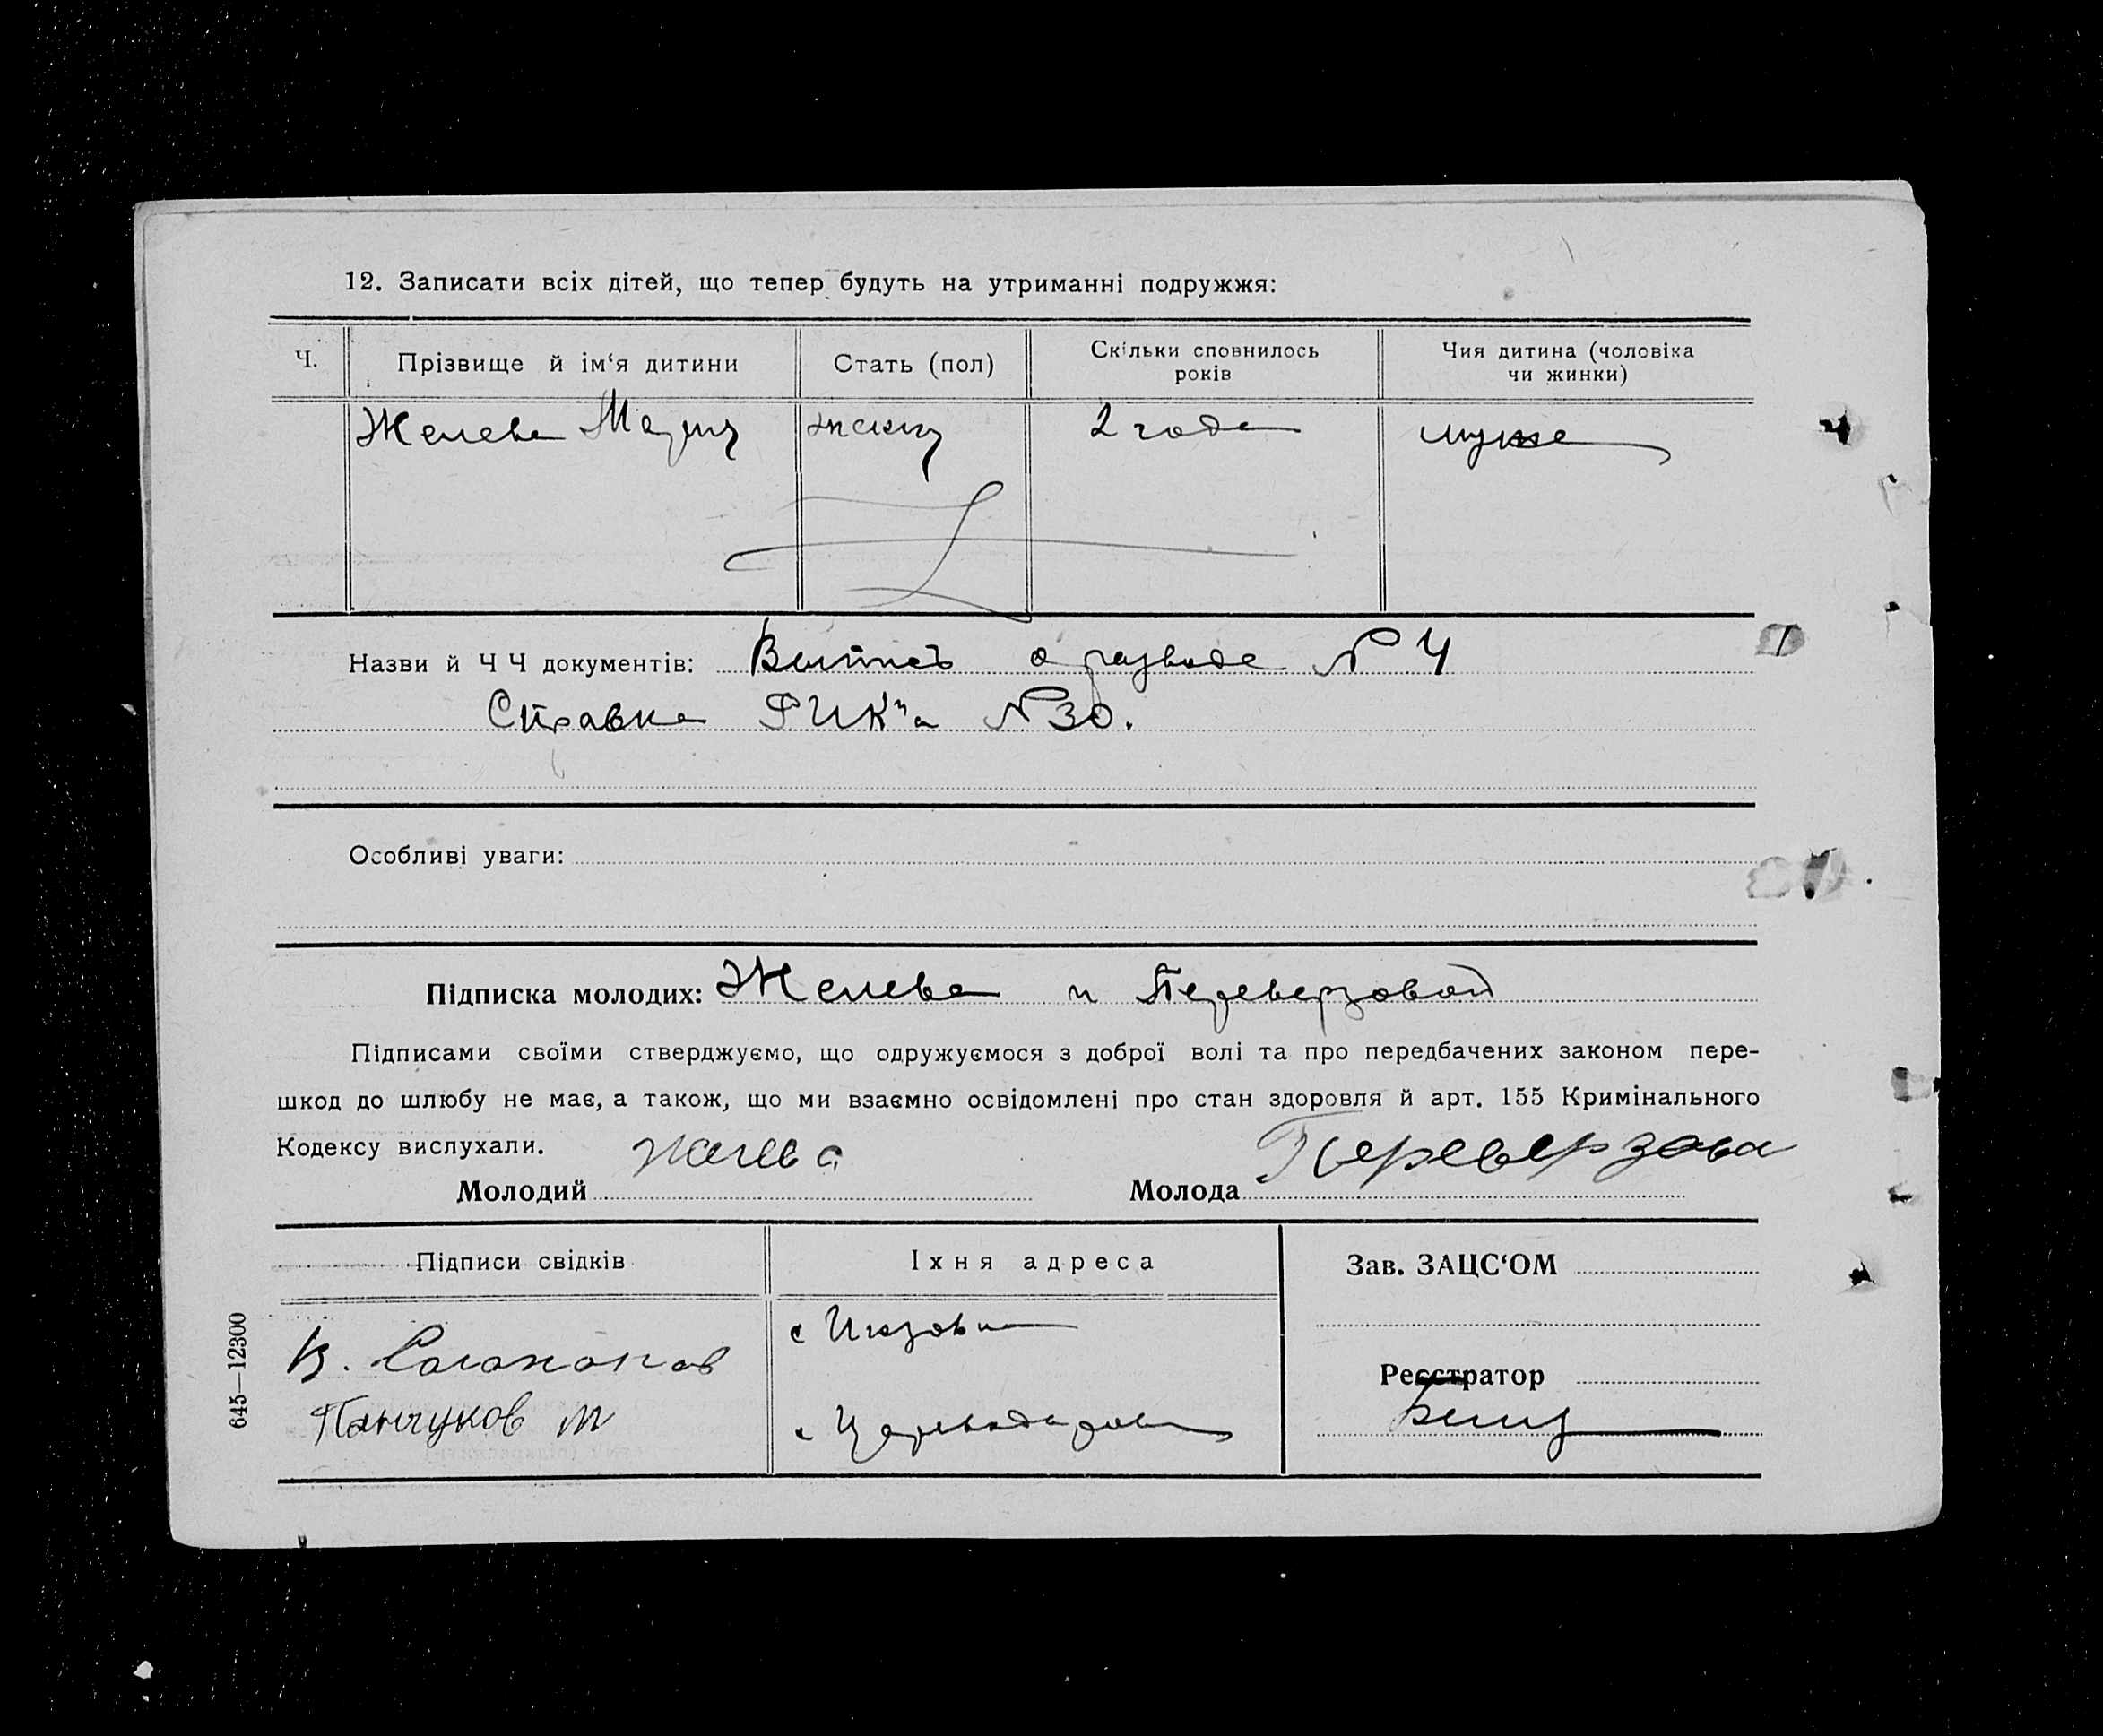 12. Записати всіх дітей, що тепер будуть на утриманні подружжя:
Ч.
Прізвище й ім‘я дитини
Стать (пол)
Скільки сповнилось
років
Чия дитина (чоловіка
чи жинки)
Желева Мария
женск
2 года
мужа
Назви й Ч Ч документів: Выпись о разводе № 4
Справка РИК"а № 30.
Особливі уваги:
Підписка молодих: Желева и Переверзовой
Підписами своїми стверджуємо, що одружуємося з доброї волі та про передбачених законом пере-
шкод до шлюбу не має, а також, що ми взаємно освідомлені про стан здоровля й арт. 155 Кримінального
Кодексу вислухали.
Молодий Желева
Молода Переверзова
Підписи свідків
Їхня адреса
Зав. ЗАЦС‘ОМ
В.
с
Реєстратор
Панчуков М
с
645—12300